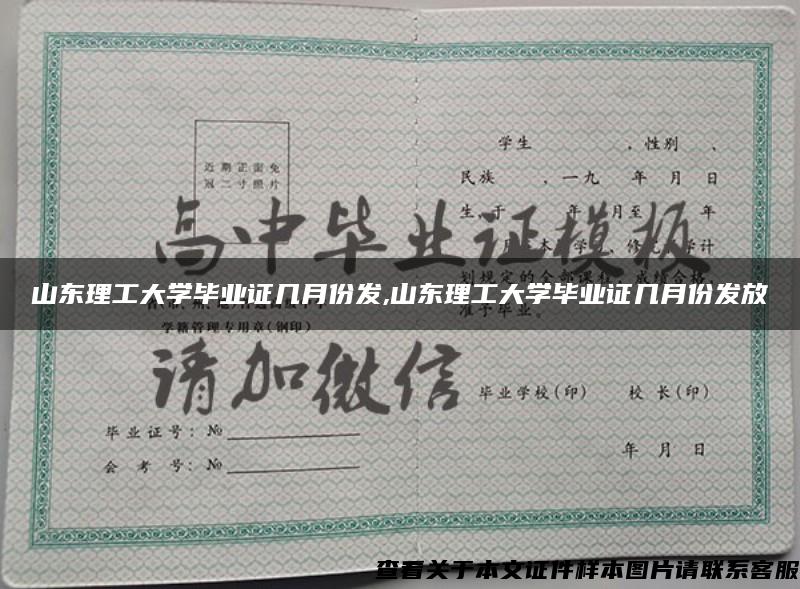 学生 ，性别 、
近期正面免
冠二寸照片
民族 、一九 年 月 日
生，于 年 月至 年
高中毕业证模板
山东理工大学毕业证几月份发,山东理工大学毕业证几月份发放
学籍管理专用章(钢印)
准予毕业。
请加微信
毕业学校(印) 校 长(印)
毕业证号：№
年 月 日
会 考 号：№
查看关于本文证件样本图片请联系客服